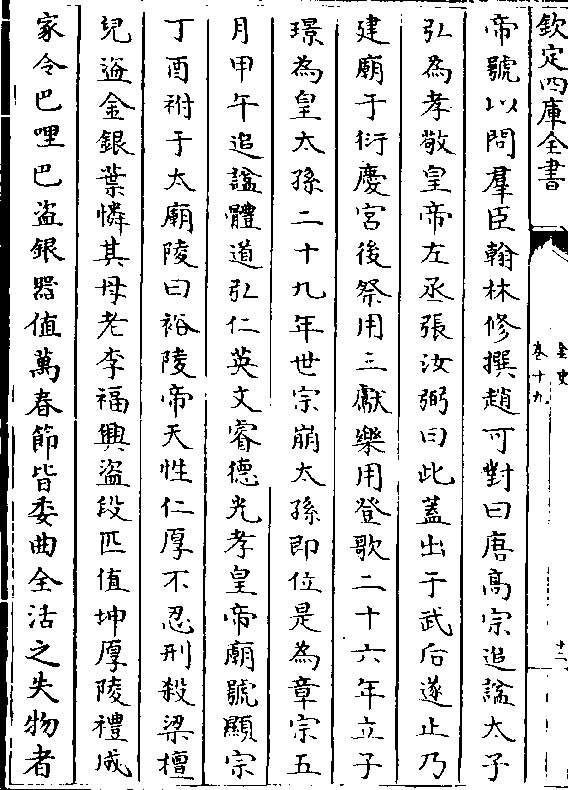 欽定四庫全書
金史
卷十九
十二
帝號以問羣臣翰林修撰趙可對曰唐高宗追諡太子
弘為孝敬皇帝左丞張汝弼曰此蓋出于武后遂止乃
建廟于衍慶宮後祭用三獻樂用登歌二十六年立子
璟為皇太孫二十九年世宗崩太孫即位是為章宗五
月甲午追諡體道弘仁英文睿德光孝皇帝廟號顯宗
丁酉祔于太廟陵曰裕陵帝天性仁厚不忍刑殺梁檀
兒盜金銀葉憐其母老李福興盜段匹值坤厚陵禮成
家令巴哩巴盜銀器值萬春節皆委曲全活之失物者